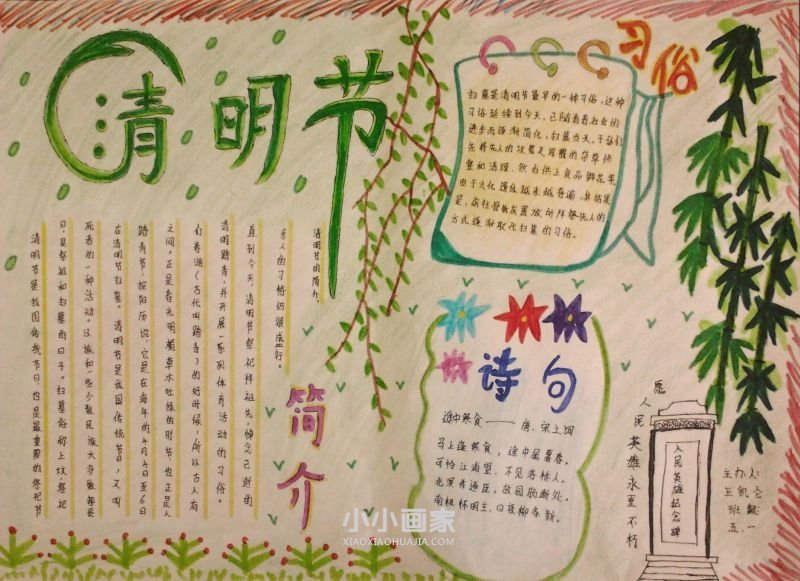 清明节
清明节的简介
清明节是我国传统节日，也是最重要的祭祀节
日，是祭祖和扫墓的日子。扫墓俗称上坟，祭祀
死者的一种活动。汉族和一些少数民族大多都是
在清明节扫墓。清明节是我国传统节日，又叫
踏青节，按阳历说，它是在每年的4月4日至6日
之间，正是春光明媚草木吐绿的时节，也正是人
们春游（古代叫踏青）的好时候，所以古人有
清明踏青，并开展一系列体育活动的习俗。
直到今天，清明节祭祀拜祖先，悼念已逝的
亲人的习俗仍很盛行。
简介
习俗
扫墓是清明节最早的一种习俗，这种
习俗延续到今天，已随着着社会的
进步而逐渐简化，扫墓当天，子孙们
先将先人的坟墓及周围的杂草修
整和清理，然后供上食品鲜花等，
由于火化遗体越来越普遍，其结果
是，前往骨灰置放所拜祭先人的
方式逐渐取代扫墓的习俗。
诗句
途中寒食——唐，宋之问
马上逢寒食，途中属暮春。
可怜江浦望，不见洛桥人。
逐臣，故园肠断处。
南极怀明主，日夜柳条新。
愿人民英雄永垂不朽
人民英雄纪念碑
主办人
王凯
五一班
小小画家
XIAOXIAOHUAJIA.COM